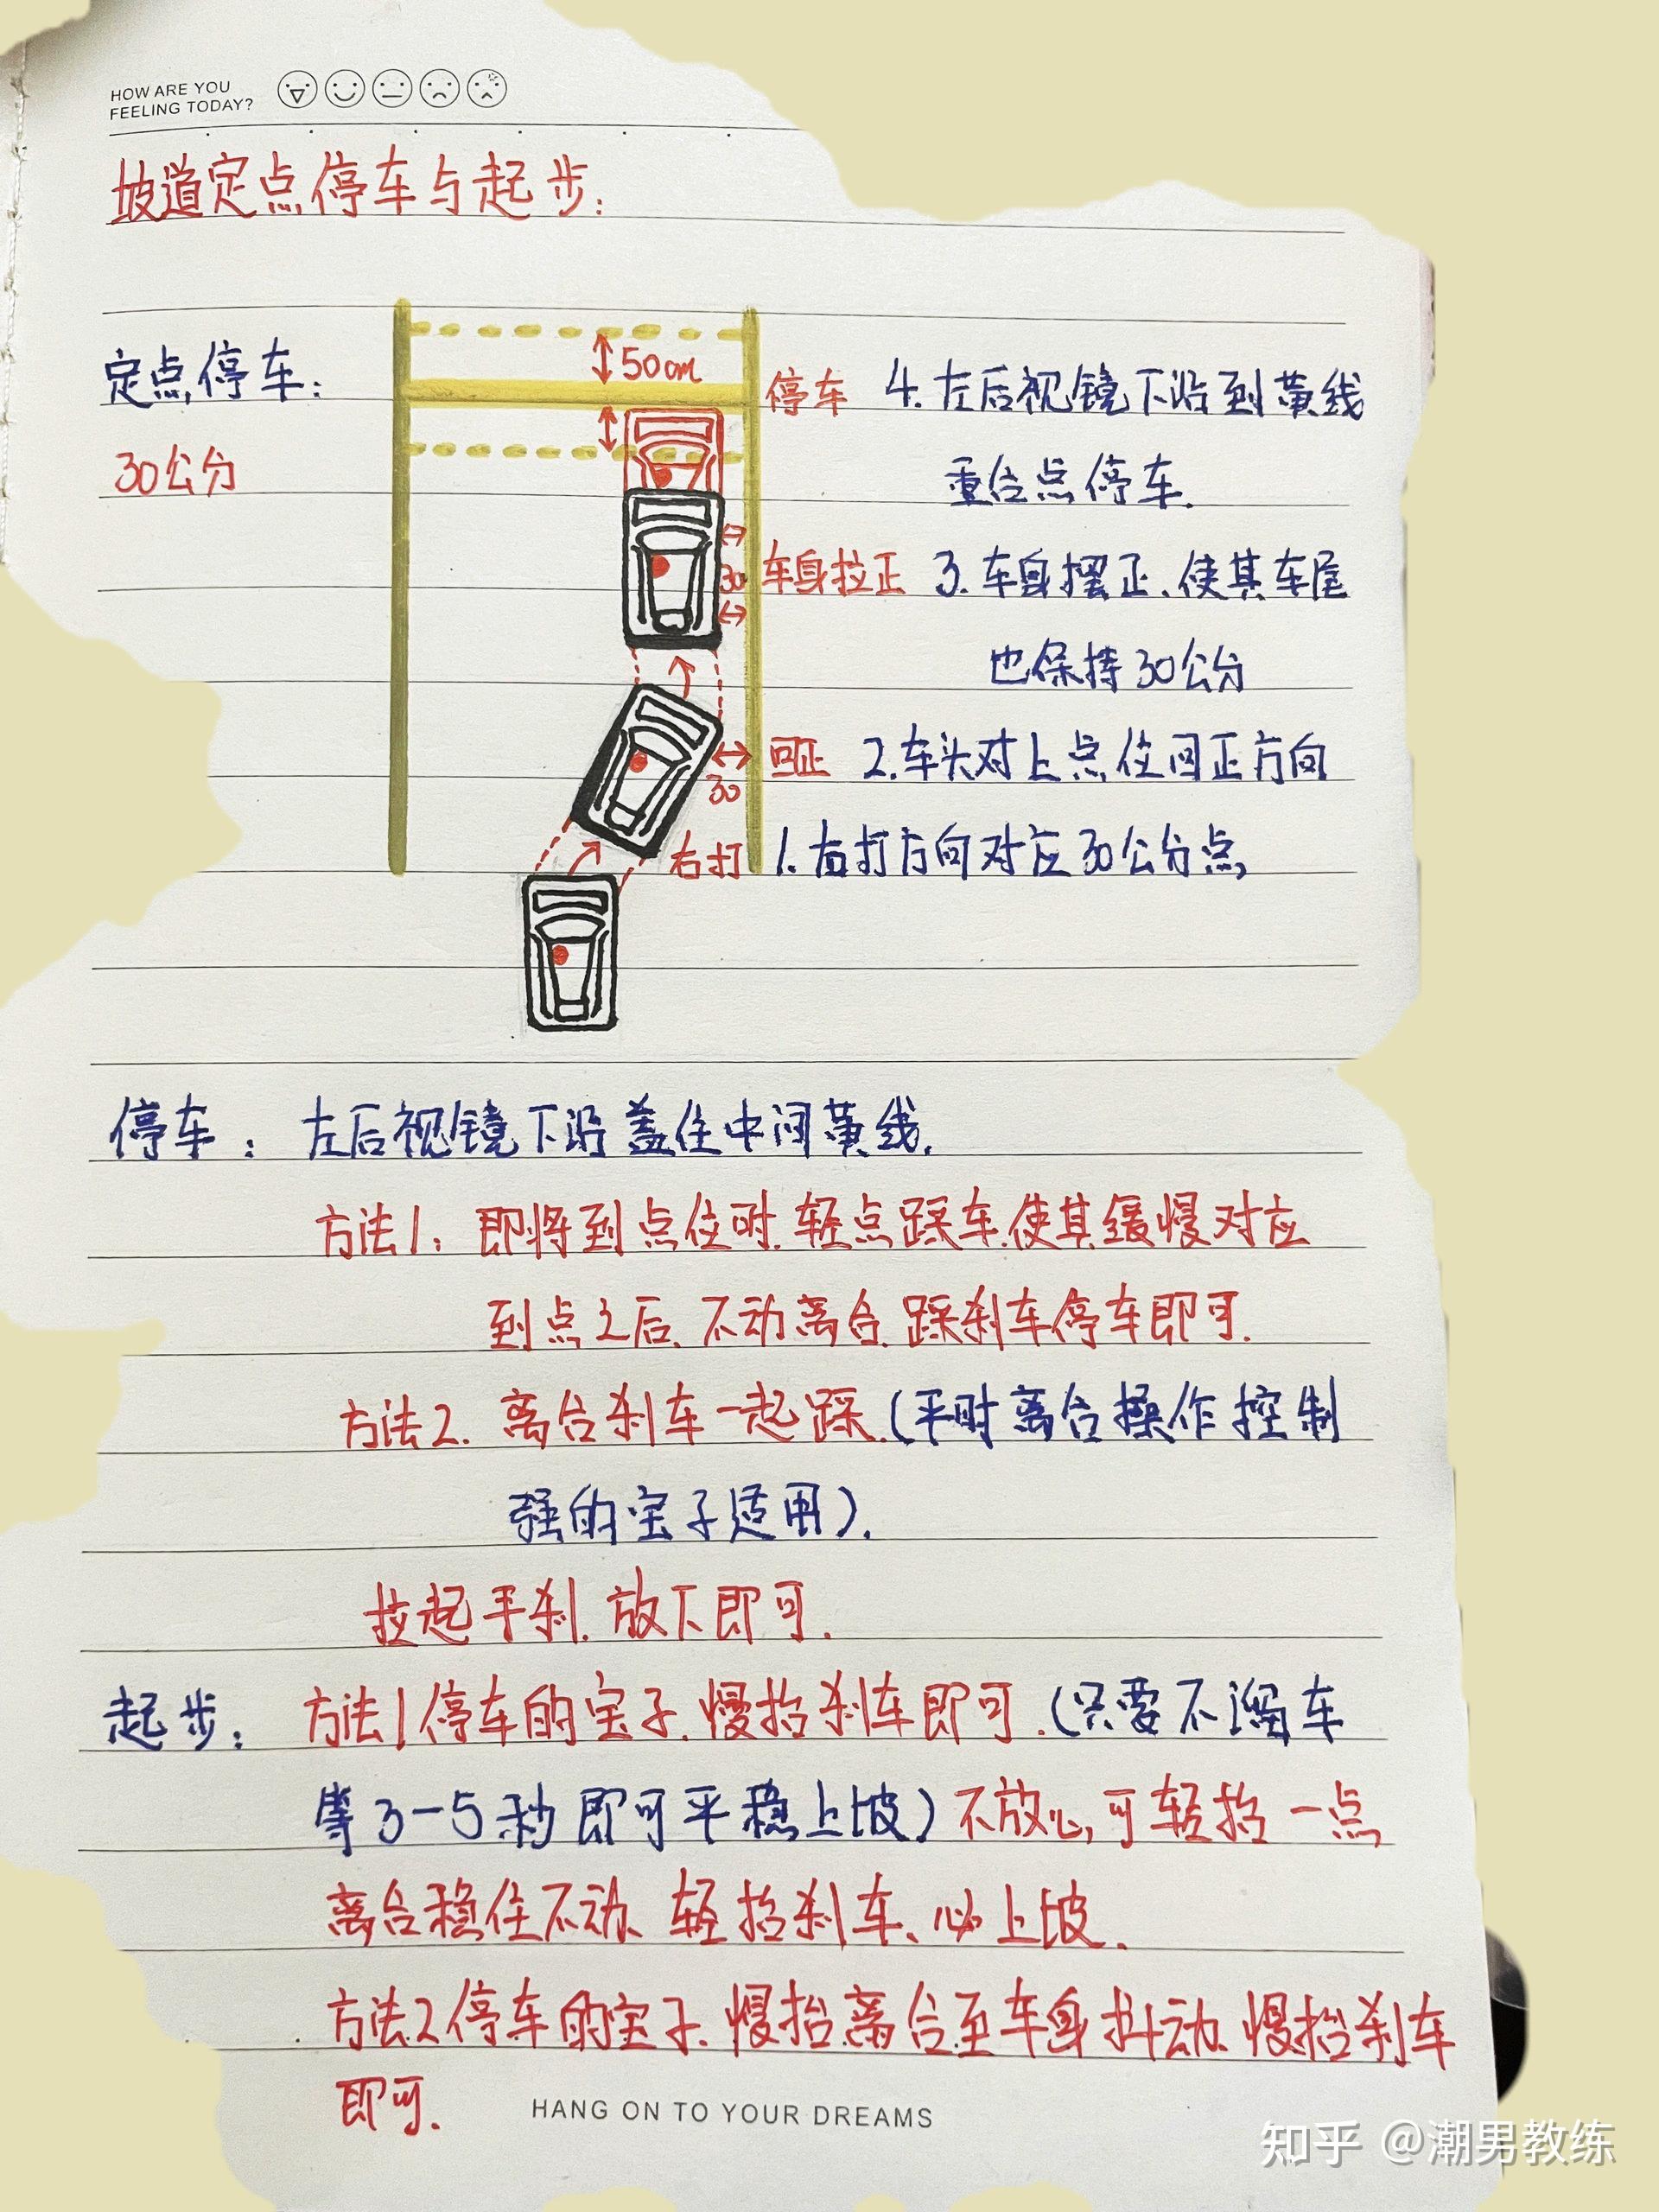 HOW ARE YOU
FEELING TODAY?
坡道定点停车与起步:
定点停车:
30公分
50cm
停车 4.左后视镜下沿到黄线
重合点停车.
30
车身拉正 3.车身摆正、使其车尾
也保持30公分
30
回正 2.车头对上点位回正方向
右打 1.右打方向对应30公分点,
停车: 左后视镜下沿盖住中间黄线.
方法1: 即将到点位时.轻点踩车.使其缓慢对应
到点之后.不动离合.踩刹车停车即可.
方法2. 离合刹车一起踩.(平时离合操作控制
强的宝子适用).
拉起手刹.放下即可.
起步: 方法1停车的宝子.慢抬刹车即可.(只要不溜车
等3-5秒即可平稳上坡)不放心,可轻抬一点
离合稳住不动、轻抬刹车、必上坡.
方法2停车的宝子.慢抬离合至车身抖动.慢抬刹车
即可.
HANG ON TO YOUR DREAMS
知乎 @潮男教练